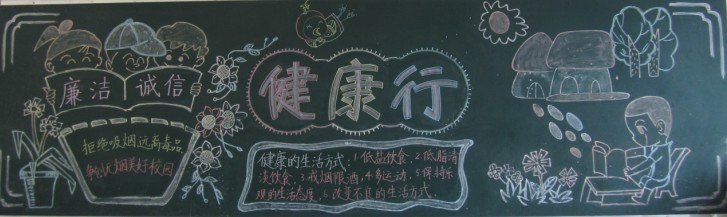 廉洁 诚信
拒绝吸烟远离毒品
无烟美好校园
健康行
健康的生活方式:1低盐饮食、2低脂清
淡饮食、3戒烟限酒、4多运动、5保持乐
观的生活态度、6改变不良的生活方式.